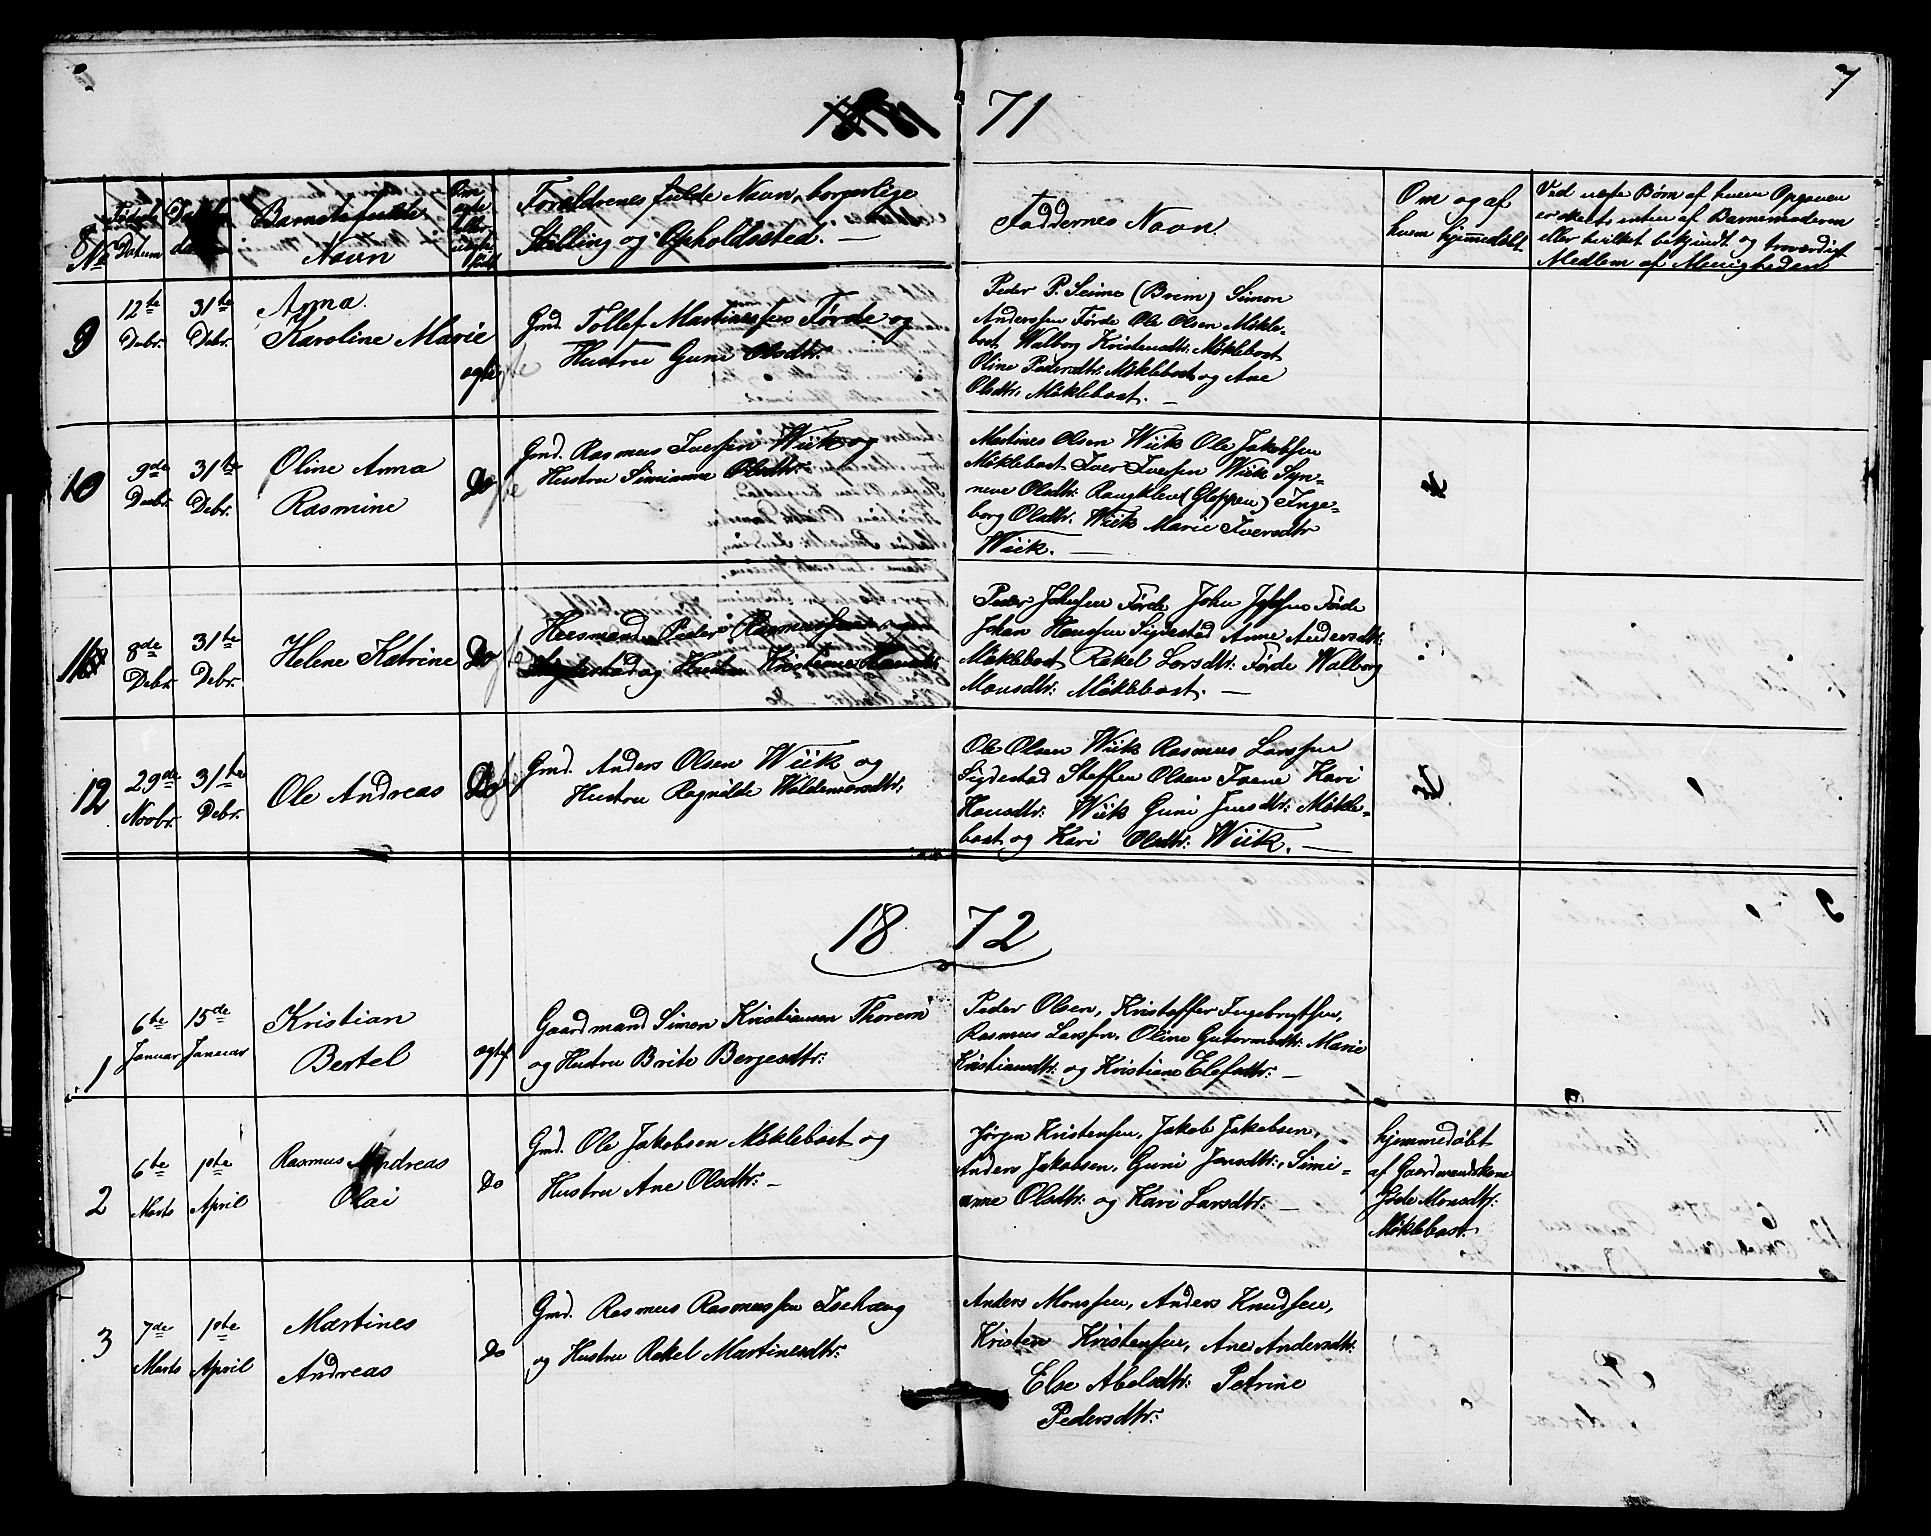 71
7
No
Fødsels Datum
Barnets fulde Navn
Om ægte eller uægte
Foreldrenes fulde Navn, borgerlige
Stilling og Opholdssted. —
Faddernes Navn.
Om og af
hvem hjemmedøbt.
Ved uægte Børn af hvem Opgaven
er skeet, enten af Barnemoderen
eller hvilket bekjendt og troværdigt
Medlem af Menigheden
9
12te Debr.
31te Debr.
Anna
Karoline Marie
ægte
Gmd. Tollef Martinessen Førde og
Hustru Guni Olsdtr:
Peder P. Seime (Brem) Simon
Anderssen Førde Ole Olsen Møkle-
bost Walborg Kristensdtr: Møklebost
Oline Pedersdtr: Møklebost og Ane
Olsdtr: Møklebost. —
10
9de Debr.
31te Debr.
Oline Anna
Rasmine
Do
Gmd. Rasmus Iversen Wiik og
Hustru Simianne Olsdtr:
Martines Olsen Wiik Ole Jakobsen
Møklebost Iver Iversen Wiik Syn-
neve Olsdtr: (Gloppen) Inge-
borg Olsdtr. Wiik Marie Iversdtr
Wiik. —
11
8de Debr.
31te Debr.
Helene Katrine
Do
Huusmand Peder Rasmussen
og Hustru Kristiane
Peder Førde John Førde
Johan Hanssen Sigdestad Anne Andersdtr:
Møklebost Rakel Larsdtr: Førde Walborg
Monsdtr: Møklebost. —
12
29de Novbr.
31te Debr.
Ole Andreas
Do
Gmd. Anders Olsen Wiik og
Hustru Ragnilde Waldemarsdtr:
Ole Olsen Wiik Rasmus Larssen
Sigdestad Steffen Olsen Kari
Hansdtr: Wiik Guni Jensdtr: Møkle-
bost og Kari Olsdtr: Wiik. —
18 72
1
6te Januar
15de Januar
Kristian
Bertel
ægte
Gaardmand Simon Kristiansen Thorem
og Hustru Brite Bergesdtr:
Peder Olsen, Kristoffer Ingebrigtsen,
Rasmus Larssen, Oline Gutormsdtr: Marie
Kristiansdtr: og Kristiane Elefsdtr: —
2
6te Marts
1ste April
Rasmus Andreas
Olai
Do
Gmd. Ole Jakobsen Møklebost og
Hustru Ane Olsdtr: —
Jørgen Kristensen, Jakob Jakobsen,
Anders Jakobsen, Guni Jensdtr:, Simi-
anne Olsdtr: og Kari Larsdtr: —
hjemmedøbt
af Gaardmandskone
Monsdtr:
Møklebost.
3
7de Marts
1ste April
Martines
Andreas
Do
Gmd. Rasmus Rasmussen
og Hustru Rakel Martinesdtr:
Anders Monssen, Anders Knudsen,
Kristen Kristensen, Ane Andersdtr:
Else Abelsdtr: Petrine
Pedersdtr: